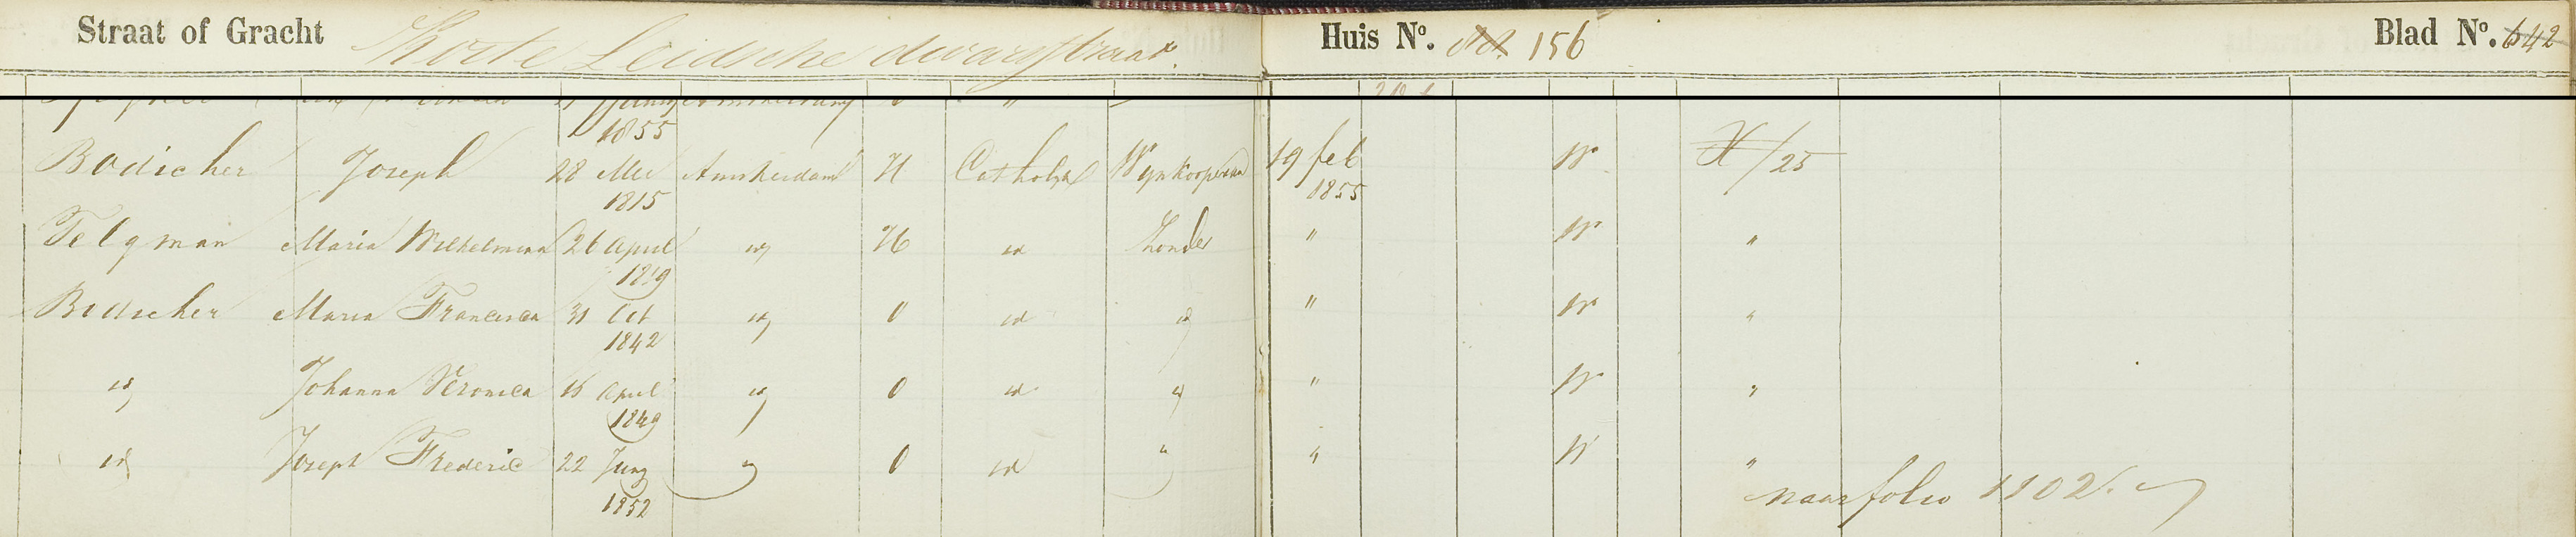 Straat of Gracht Korte Leidsche dwarsstraat. Huis No. 156 Blad No. 642
1855
Bodicher Joseph 28 Mei Amsterdam H Catholyk 19 feb W X/25
1815 1855
Telgman Maria Wilhelmina 26 April id H id Zonder " W "
1819
Bodischer Maria Francisca 31 Oct id 0 id id " W "
1842
id Johanna Veronica 15 April id 0 id id " W "
1849
id Joseph Frederic 22 Juny " 0 id " " W "
1852 naar folio 1102.